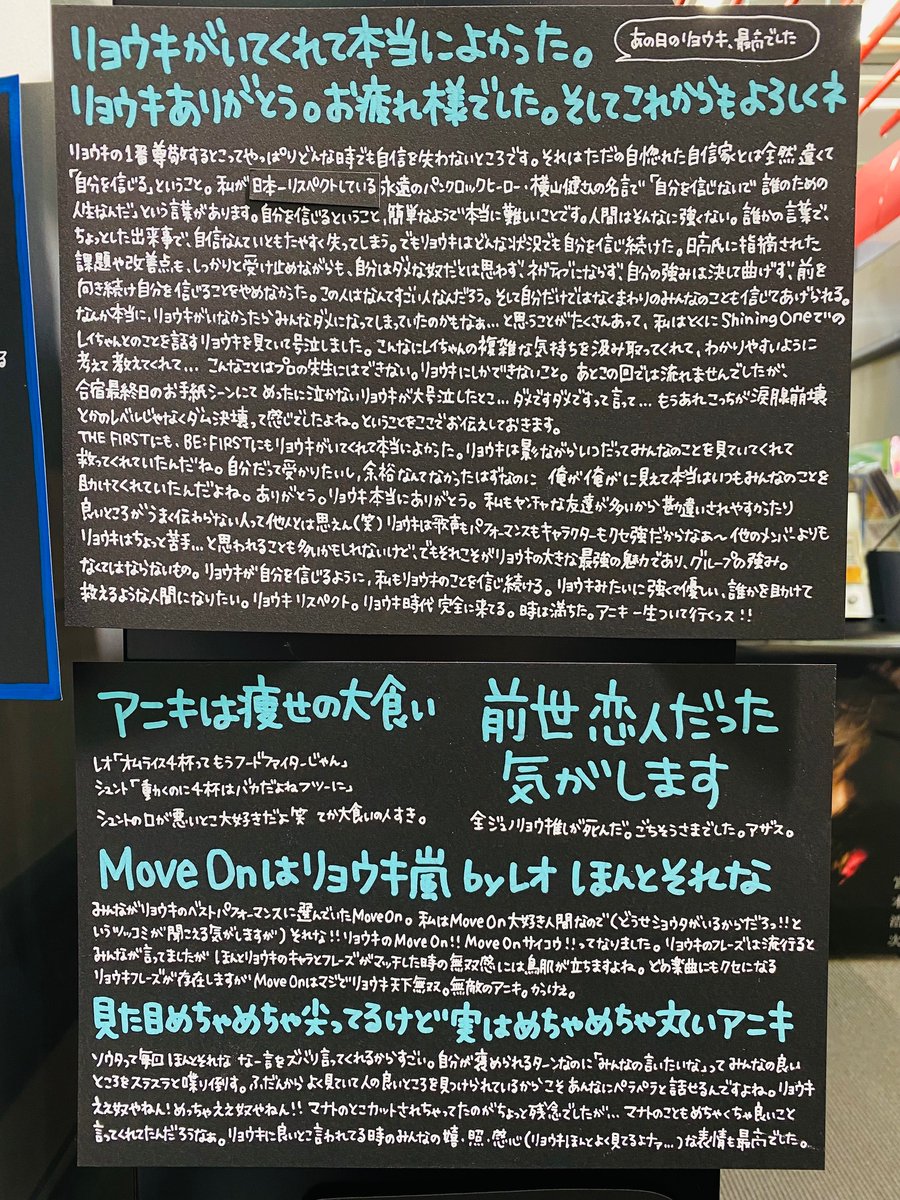 リョウキがいてくれて本当によかった。
あの日のリョウキ、最高でした
リョウキありがとう。お疲れ様でした。そしてこれからもよろしくネ
リョウキの1番尊敬するとこってやっぱりどんな時でも自信を失わないところです。それはただの自惚れた自信家とは全然違くて
「自分を信じる」ということ。私が日本一リスペクトしている永遠のパンクロックヒーロー・横山健さんの名言で「自分を信じないで誰のための
人生なんだ」という言葉があります。自分を信じるということ、簡単なようで本当に難しいことです。人間はそんなに強くない。誰かの言葉で、
ちょっとした出来事で、自信なんていともたやすく失ってしまう。でもリョウキはどんな状況でも自分を信じ続けた。日高氏に指摘された
課題や改善点も、しっかりと受け止めながらも、自分はダメな奴だとは思わず、ネガティブにならず、自分の強みは決して曲げず、前を
向き続け自分を信じることをやめなかった。この人はなんてすごい人なんだろう。そして自分だけではなくまわりのみんなのことも信じてあげられる。
なんか本当に、リョウキがいなかったらみんなダメになってしまっていたのかもなぁ…と思うことがたくさんあって、私はとくにShining Oneでの
レイちゃんとのこと話すリョウキを見ていて号泣しました。こんなにレイちゃんの複雑な気持ちを汲み取ってくれて、わかりやすいように
考えて教えてくれて…こんなことはプロの先生にはできない。リョウキにしかできないこと。あとこの回では流れませんでしたが、
合宿最終日のお手紙シーンにてめったに泣かないリョウキが大号泣したとこ…ダメですダメですって言って…もうあれこっちが涙腺崩壊
とかのレベルじゃなくダム決壊って感じでしたよね。ということをここでお伝えしておきます。
THE FIRSTにも、BE:FIRSTにもリョウキがいてくれて本当によかった。リョウキは暴れながらいつだってみんなのことを見ていてくれて
救ってくれていたんだね。自分だって受かりたいし、余裕なんてなかったはずなのに 俺が俺がに見えて本当はいつもみんなのことを
助けてくれていたんだよね。ありがとう。リョウキ本当にありがとう。私もヤンチャな友達が多いから勘違いされやすかったり
良いところがうまく伝わらない人って他人とは思えん(笑)リョウキは歌声もパフォーマンスもキャラクターもクセ強だからなあ〜他のメンバーよりも
リョウキはちょっと苦手…と思われることも多いかもしれないけど、でもそれこそがリョウキの大きな最強の魅力であり、グループの強み。
なくてはならないもの。リョウキが自分を信じるように、私もリョウキのことを信じ続ける。リョウキみたいに強くて優しい、誰かを助けて
救えるような人間になりたい。リョウキリスペクト。リョウキ時代完全に来てる。時は満ちた。アニキ一生ついて行くっス!!
アニキは痩せの大食い
レオ「オムライス4杯ってもうフードファイターじゃん」
シュント「動くのに4杯はバカだよねフツーに」
シュントの口が悪いとこ大好きだよ笑 てか大食いの人すき。
前世 恋人だった
気がします
全ジュノリョウ推しが死んだ。ごちそうさまでした。アザス。
Move Onはリョウキ嵐 by レオ ほんとそれな
みんながリョウキのベストパフォーマンスに選んでいたMove On。私はMove On大好き人間なので(どうせショウタがいるからだろっ!!と
いうツッコミが聞こえる気がしますが)それな!!リョウキのMove On!! Move Onサイコウ!!ってなりました。リョウキのフレーズは流行ると
みんなが言ってましたが ほんとリョウキのキャラとフレーズがマッチした時の無双感には鳥肌が立ちますよね。どの楽曲にもクセになる
リョウキフレーズが存在しますが Move Onはマジでリョウキ天下無双。無敵のアニキ。かっけぇ。
見た目めちゃめちゃ尖ってるけど実はめちゃめちゃ丸いアニキ
ソウタって毎回ほんとそれな な一言をズバリ言ってくれるからすごい。自分が褒められるターンなのに「みんなの言いたいな」ってみんなの良い
ところをスラスラと喋り倒す。ふだんからよく見ていて人の良いところを見つけられているからこそあんなにペラペラと話せるんですよね。リョウキ
ええ奴やねん!めっちゃええ奴やねん!!マナトのとこカットされちゃってたのがちょっと残念でしたが…マナトのこともめちゃくちゃ良いこと
言ってくれてたんだろうなぁ。リョウキに良いとこ言われてる時のみんなの嬉・照・感心(リョウキほんとよく見てるよナァ…)な表情も最高でした。